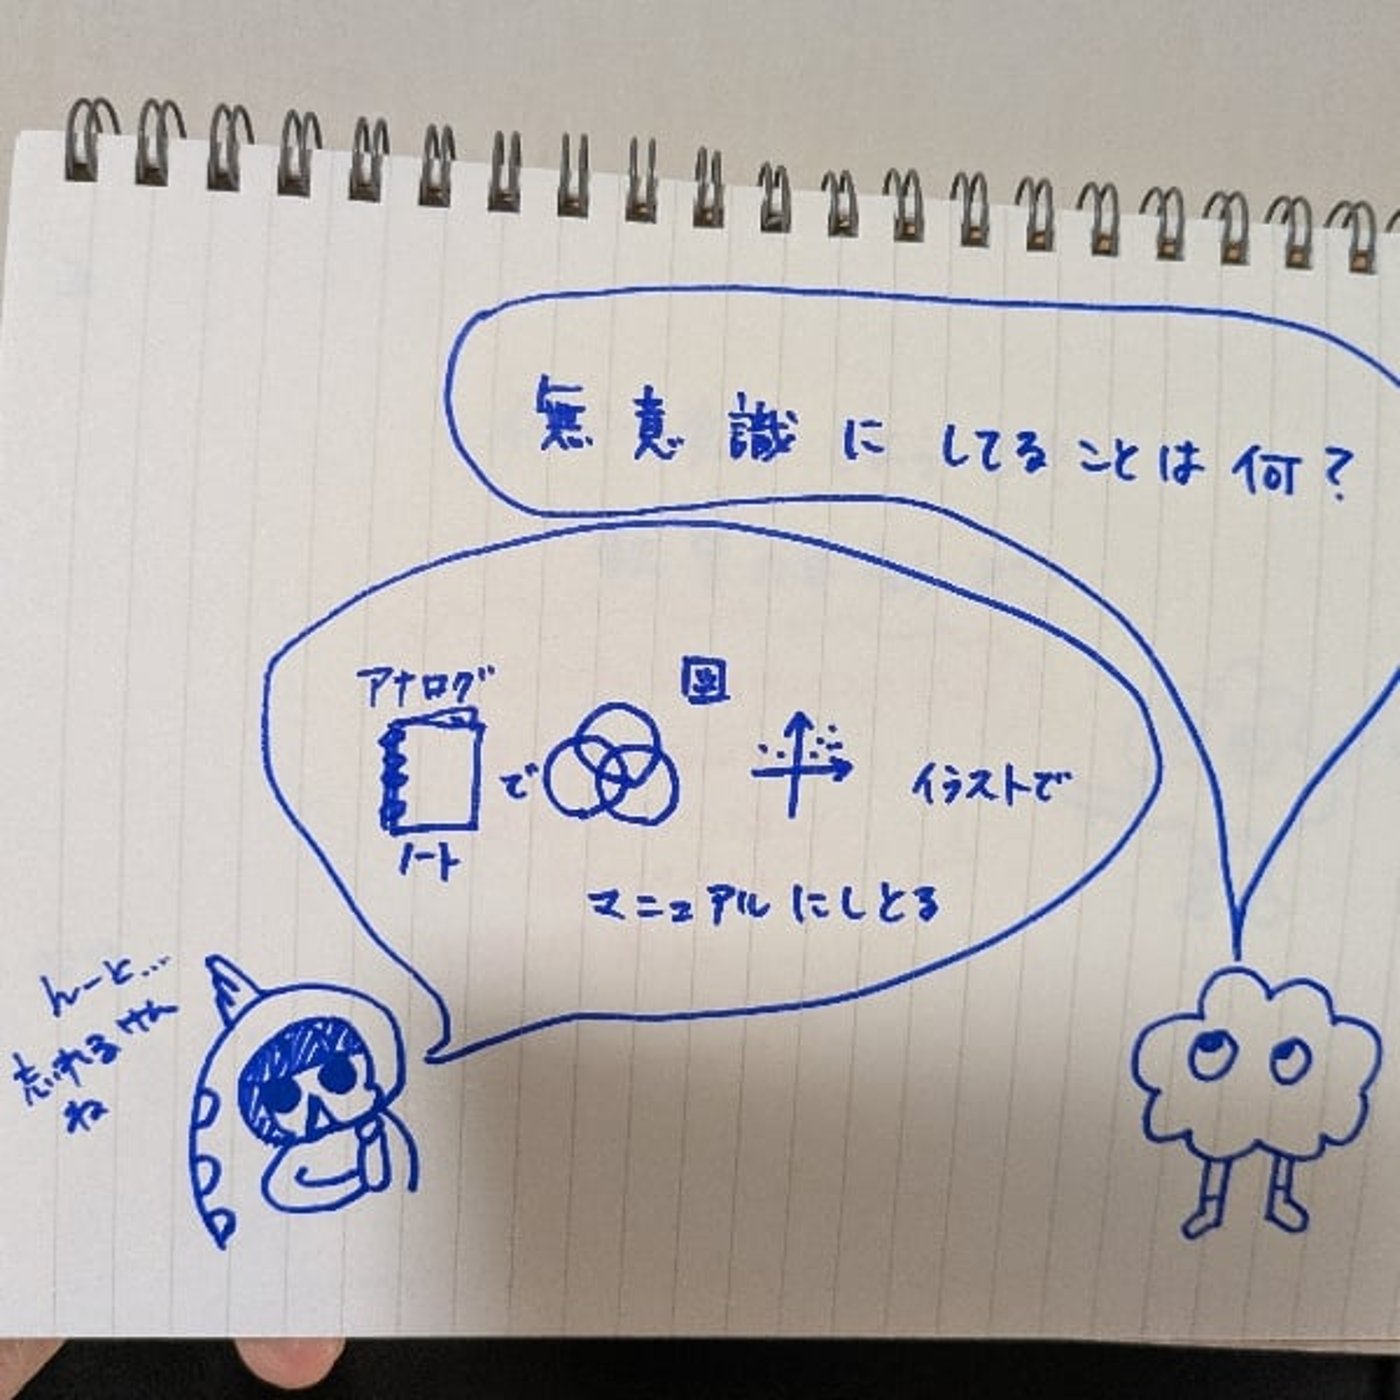 無意識にしてることは何？
アナログ
図
で
イラストで
ノート
マニュアルにしとる
んーと…
忘れるけん
ね